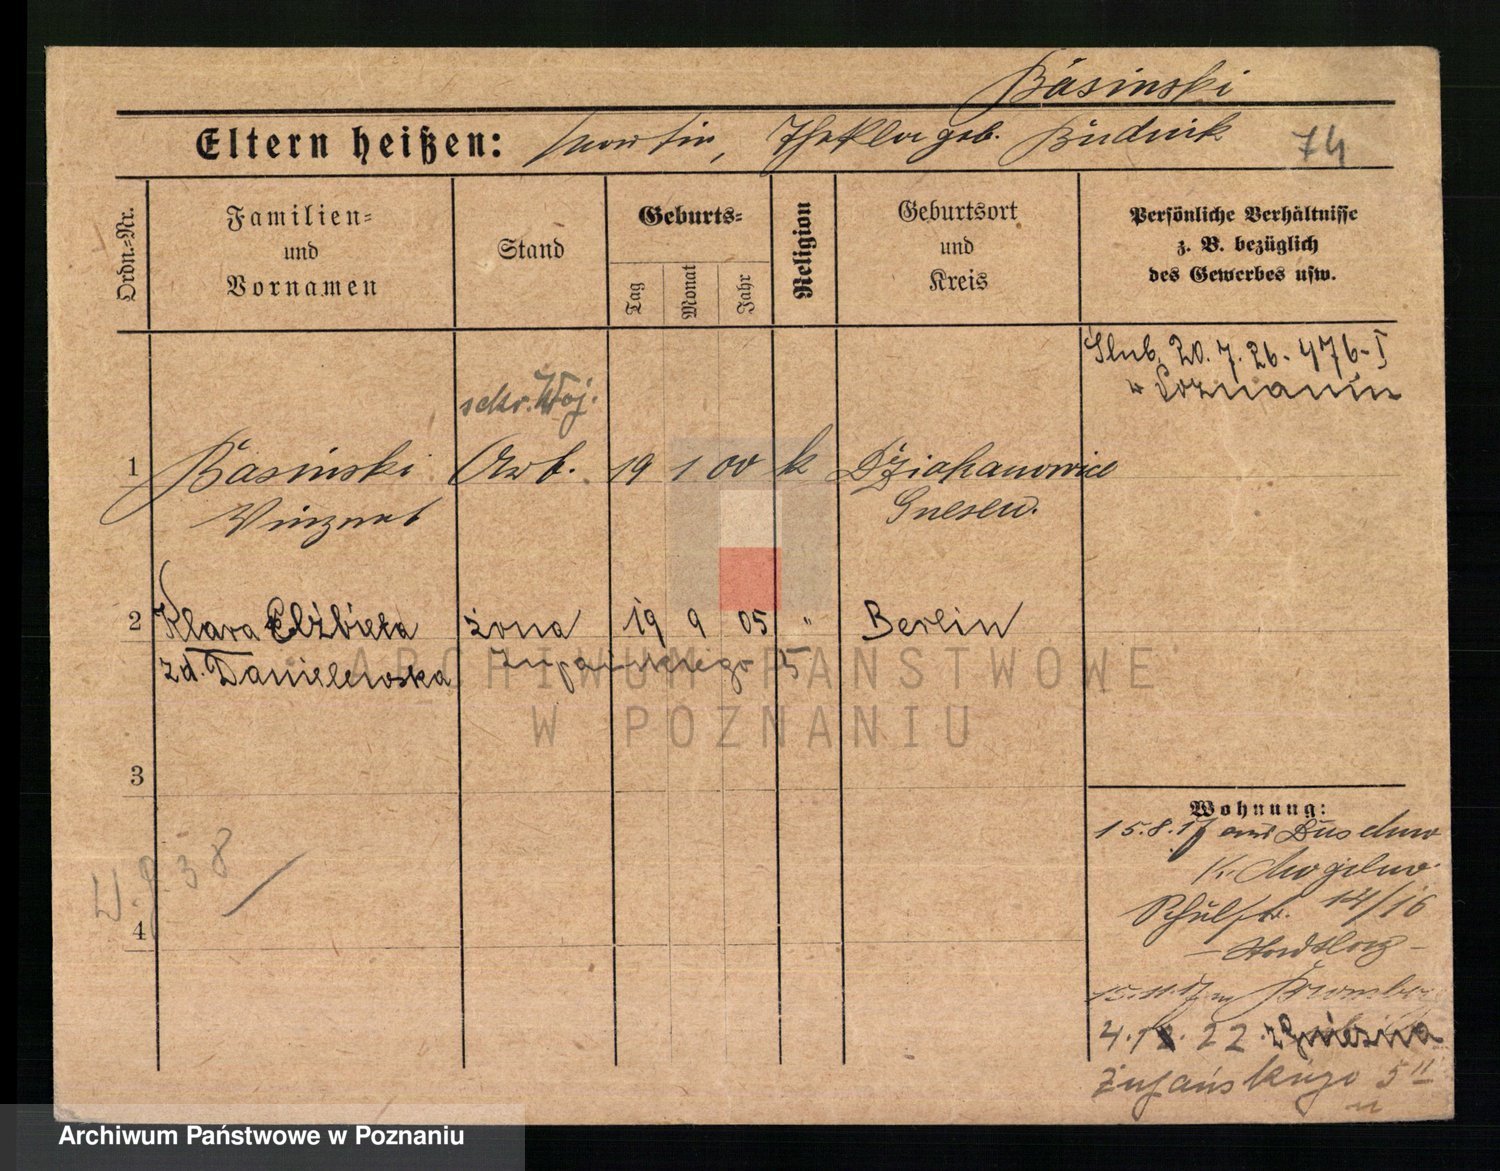 Básinski
Eltern heißen: Martin, Thekla geb. Budnik 74
Ordn.-Nr.
Familien- und Vornamen
Stand
Geburts-
Tag
Monat
Jahr
Religion
Geburtsort und Kreis
Persönliche Verhältnisse
z. B. bezüglich
des Gewerbes usw.
Ślub. 20.7.26-476-I
w Poznaniu
sekr. Woj.
1 Basinski Arb. 19 1 00 k Dziakanowice
Vinzent Gnesen.
2 Klara Elżbieta żona 19 9 05 " Berlin
zd. Danielewska Żupańskiego 5
3
4
W. 9. 38
Wohnung:
15.8.17 aus Duschno
K. Mogilno
Schulstr. 14/16
15.11.17 n Bromberg
4.12.22 z Gniezna
Żupańskiego 5 II
ARCHIWUM PAŃSTWOWE
W POZNANIU
Archiwum Państwowe w Poznaniu